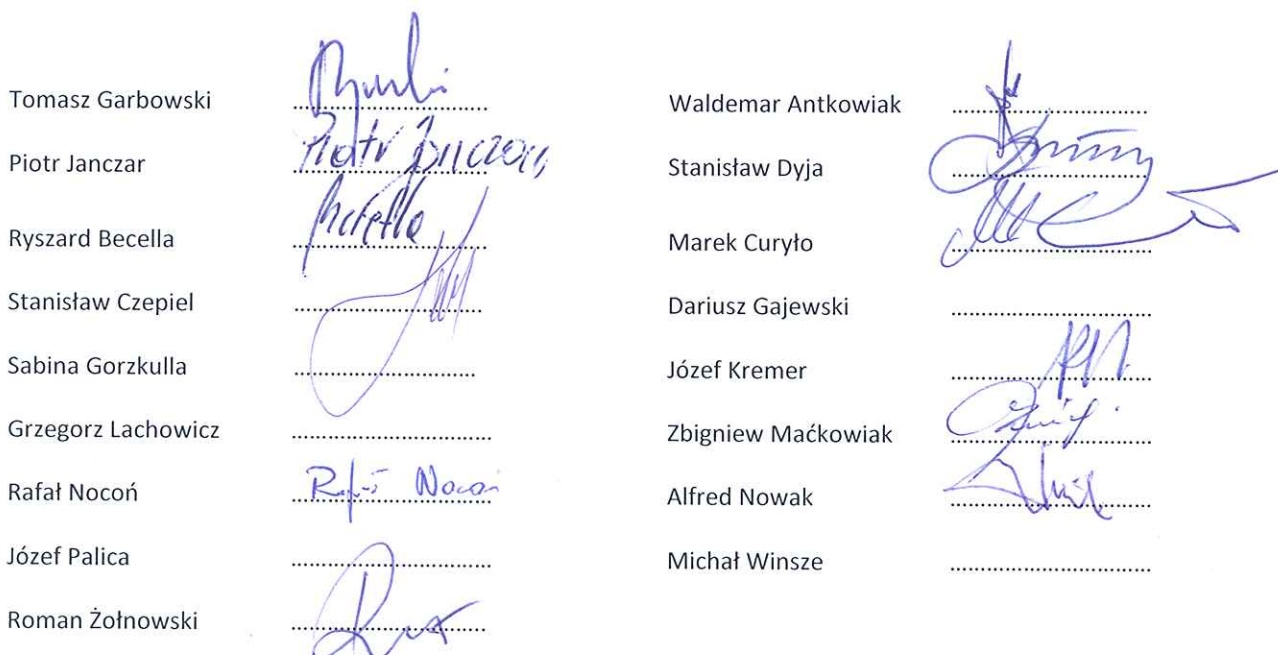 Tomasz Garbowski ........................................
Piotr Janczar Piotr Janczar
Ryszard Becella ........................................
Stanisław Czepiel ........................................
Sabina Gorzkulla ........................................
Grzegorz Lachowicz ........................................
Rafał Nocoń Rafał Nocoń
Józef Palica ........................................
Roman Żołnowski ........................................
Waldemar Antkowiak ........................................
Stanisław Dyja ........................................
Marek Curyło ........................................
Dariusz Gajewski ........................................
Józef Kremer ........................................
Zbigniew Maćkowiak ........................................
Alfred Nowak ........................................
Michał Winsze ........................................